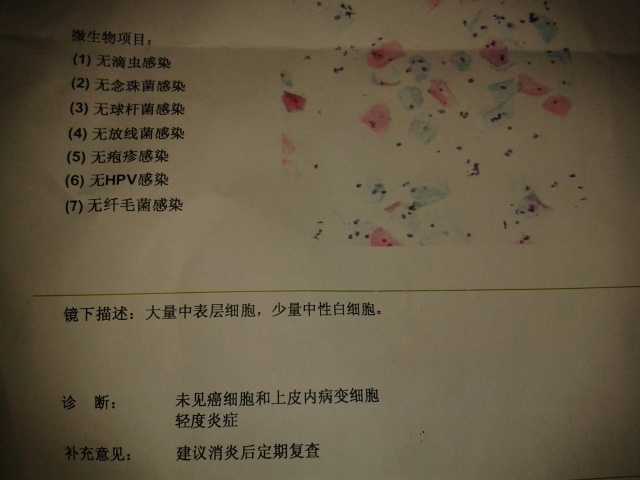 微生物项目:
(1) 无滴虫感染
(2) 无念珠菌感染
(3) 无球杆菌感染
(4) 无放线菌感染
(5) 无疱疹感染
(6) 无HPV感染
(7) 无纤毛菌感染
镜下描述: 大量中表层细胞，少量中性白细胞。
诊 断: 未见癌细胞和上皮内病变细胞
轻度炎症
补充意见: 建议消炎后定期复查